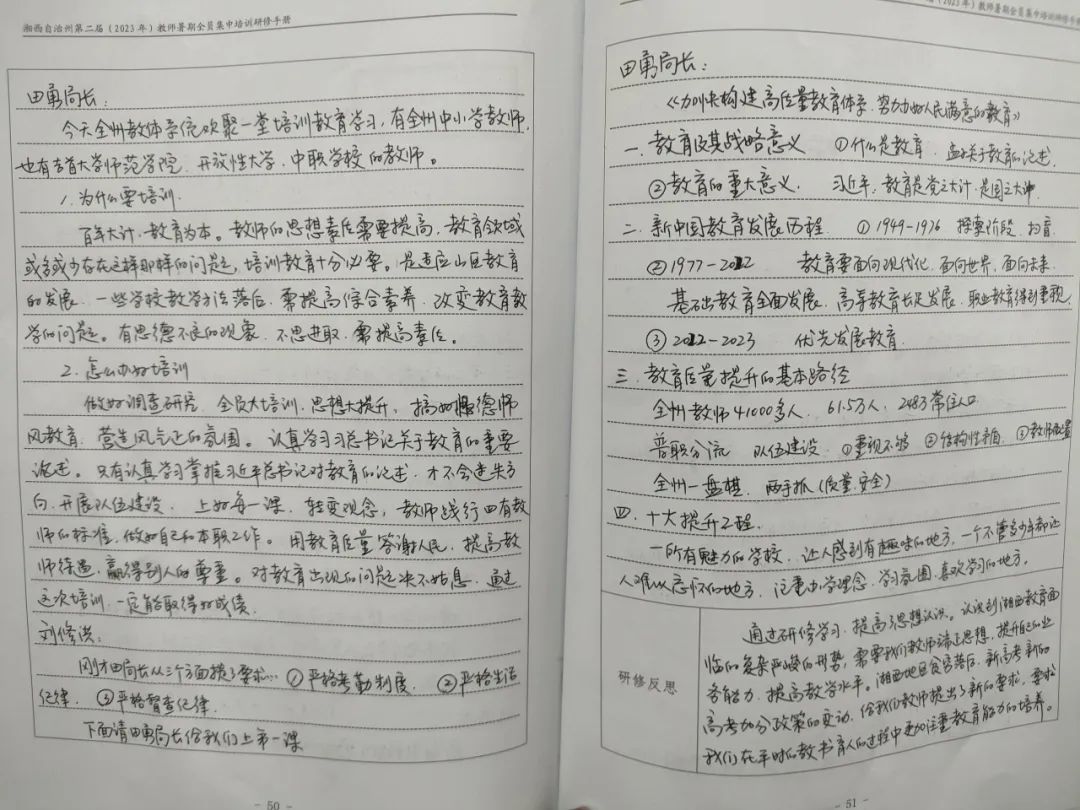 湘西自治州第二届（2023年）教师暑期全员集中培训研修手册
田勇局长：
今天全州教体系统欢聚一堂培训教育学习，有全州中小学教师，
也有吉首大学师范学院、开放性大学、中职学校的教师。
1. 为什么要培训.
百年大计，教育为本。教师的思想素质需要提高，教育领域
或多或少存在这样那样的问题，培训教育十分必要。是适应山区教育
的发展，一些学校教学方法落后，需提高综合素养，改变教育教
学的问题。有思德不良的现象，不思进取，需提高素质。
2. 怎么办好培训
做好调查研究，全员大培训，思想大提升，搞好师德师
风教育，营造风气正的氛围。认真学习习总书记关于教育的重要
论述。只有认真学习掌握习近平总书记对教育的论述，才不会迷失方
向，开展队伍建设，上好每一课，转变观念，教师践行四有教
师的标准，做好自己的本职工作。用教育质量答谢人民，提高教
师待遇，赢得别人的尊重。对教育出现的问题决不姑息，通过
这次培训，一定能取得好成绩。
刘修洪：
刚才田局长从三个方面提了要求… ①严格考勤制度. ②严格生活
纪律. ③严格督查纪律.
下面请田勇局长给我们上第一课
- 50 -
2023年）教师暑期全员集中培训研修手册
田勇局长：
《加快构建高质量教育体系，努力办好人民满意的教育》
一. 教育及其战略意义 ①什么是教育，孟子关于教育的论述.
②教育的重大意义. 习近平，教育是党之大计，是国之大计.
二. 新中国教育发展历程 ①1949-1976 探索阶段，扫盲.
②1977-2012 教育要面向现代化，面向世界，面向未来.
基础教育全面发展，高等教育长足发展，职业教育得到重视.
③2012-2023 优先发展教育
三. 教育质量提升的基本路径
全州教师41000多人，61.5万人，248.3常住人口
普职分流 队伍建设. ①重视不够 ②结构性矛盾 ③教师配置
全州一盘棋，两手抓（质量.安全）
四. 十大提升工程.
一所有魅力的学校，让人感到有趣味的地方，一个不管多少年都让
人难以忘怀的地方，注重办学理念，学习氛围，喜欢学习的地方.
研修反思
通过研修学习，提高了思想认识。认识到湘西教育面
临的复杂严峻的形势，需要我们教师端正思想，提升自己的业
务能力，提高教学水平。湘西地区贫穷落后，新高考新的
高考加分政策的变动，给我们教师提出了新的要求，要求
我们在平时的教书育人的过程中更加注重教育能力的培养。
- 51 -